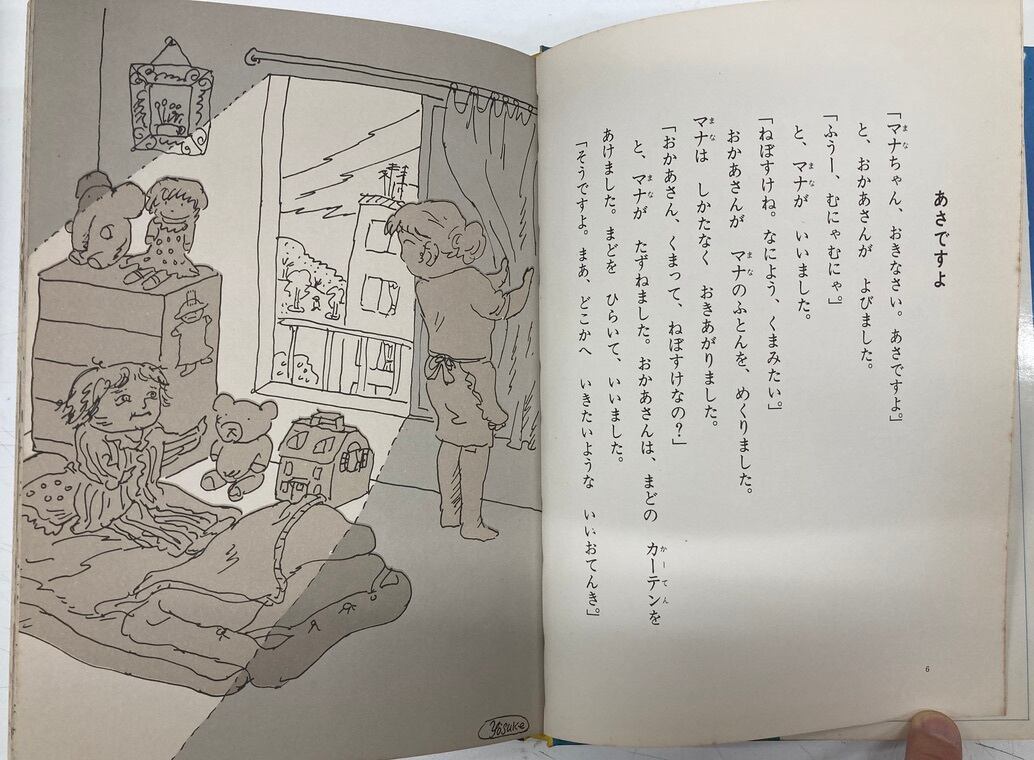 あさですよ
「マナちゃん、おきなさい。あさですよ。」
と、おかあさんが　よびました。
「ふうー、むにゃむにゃ。」
と、マナが　いいました。
「ねぼすけね。なによう、くまみたい。」
おかあさんが　マナのふとんを、めくりました。
マナは　しかたなく　おきあがりました。
「おかあさん、くまって、ねぼすけなの？」
と、マナが　たずねました。おかあさんは、まどの　カーテンを
あけました。まどを　ひらいて、いいました。
「そうですよ。まあ、どこかへ　いきたいような　いいおてんき。」
6
Yosuke